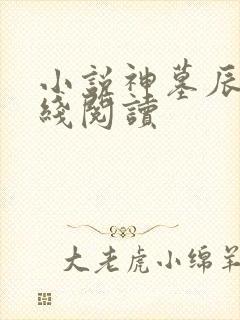 小說神墓辰
綫閱讀
大老虎小绵羊